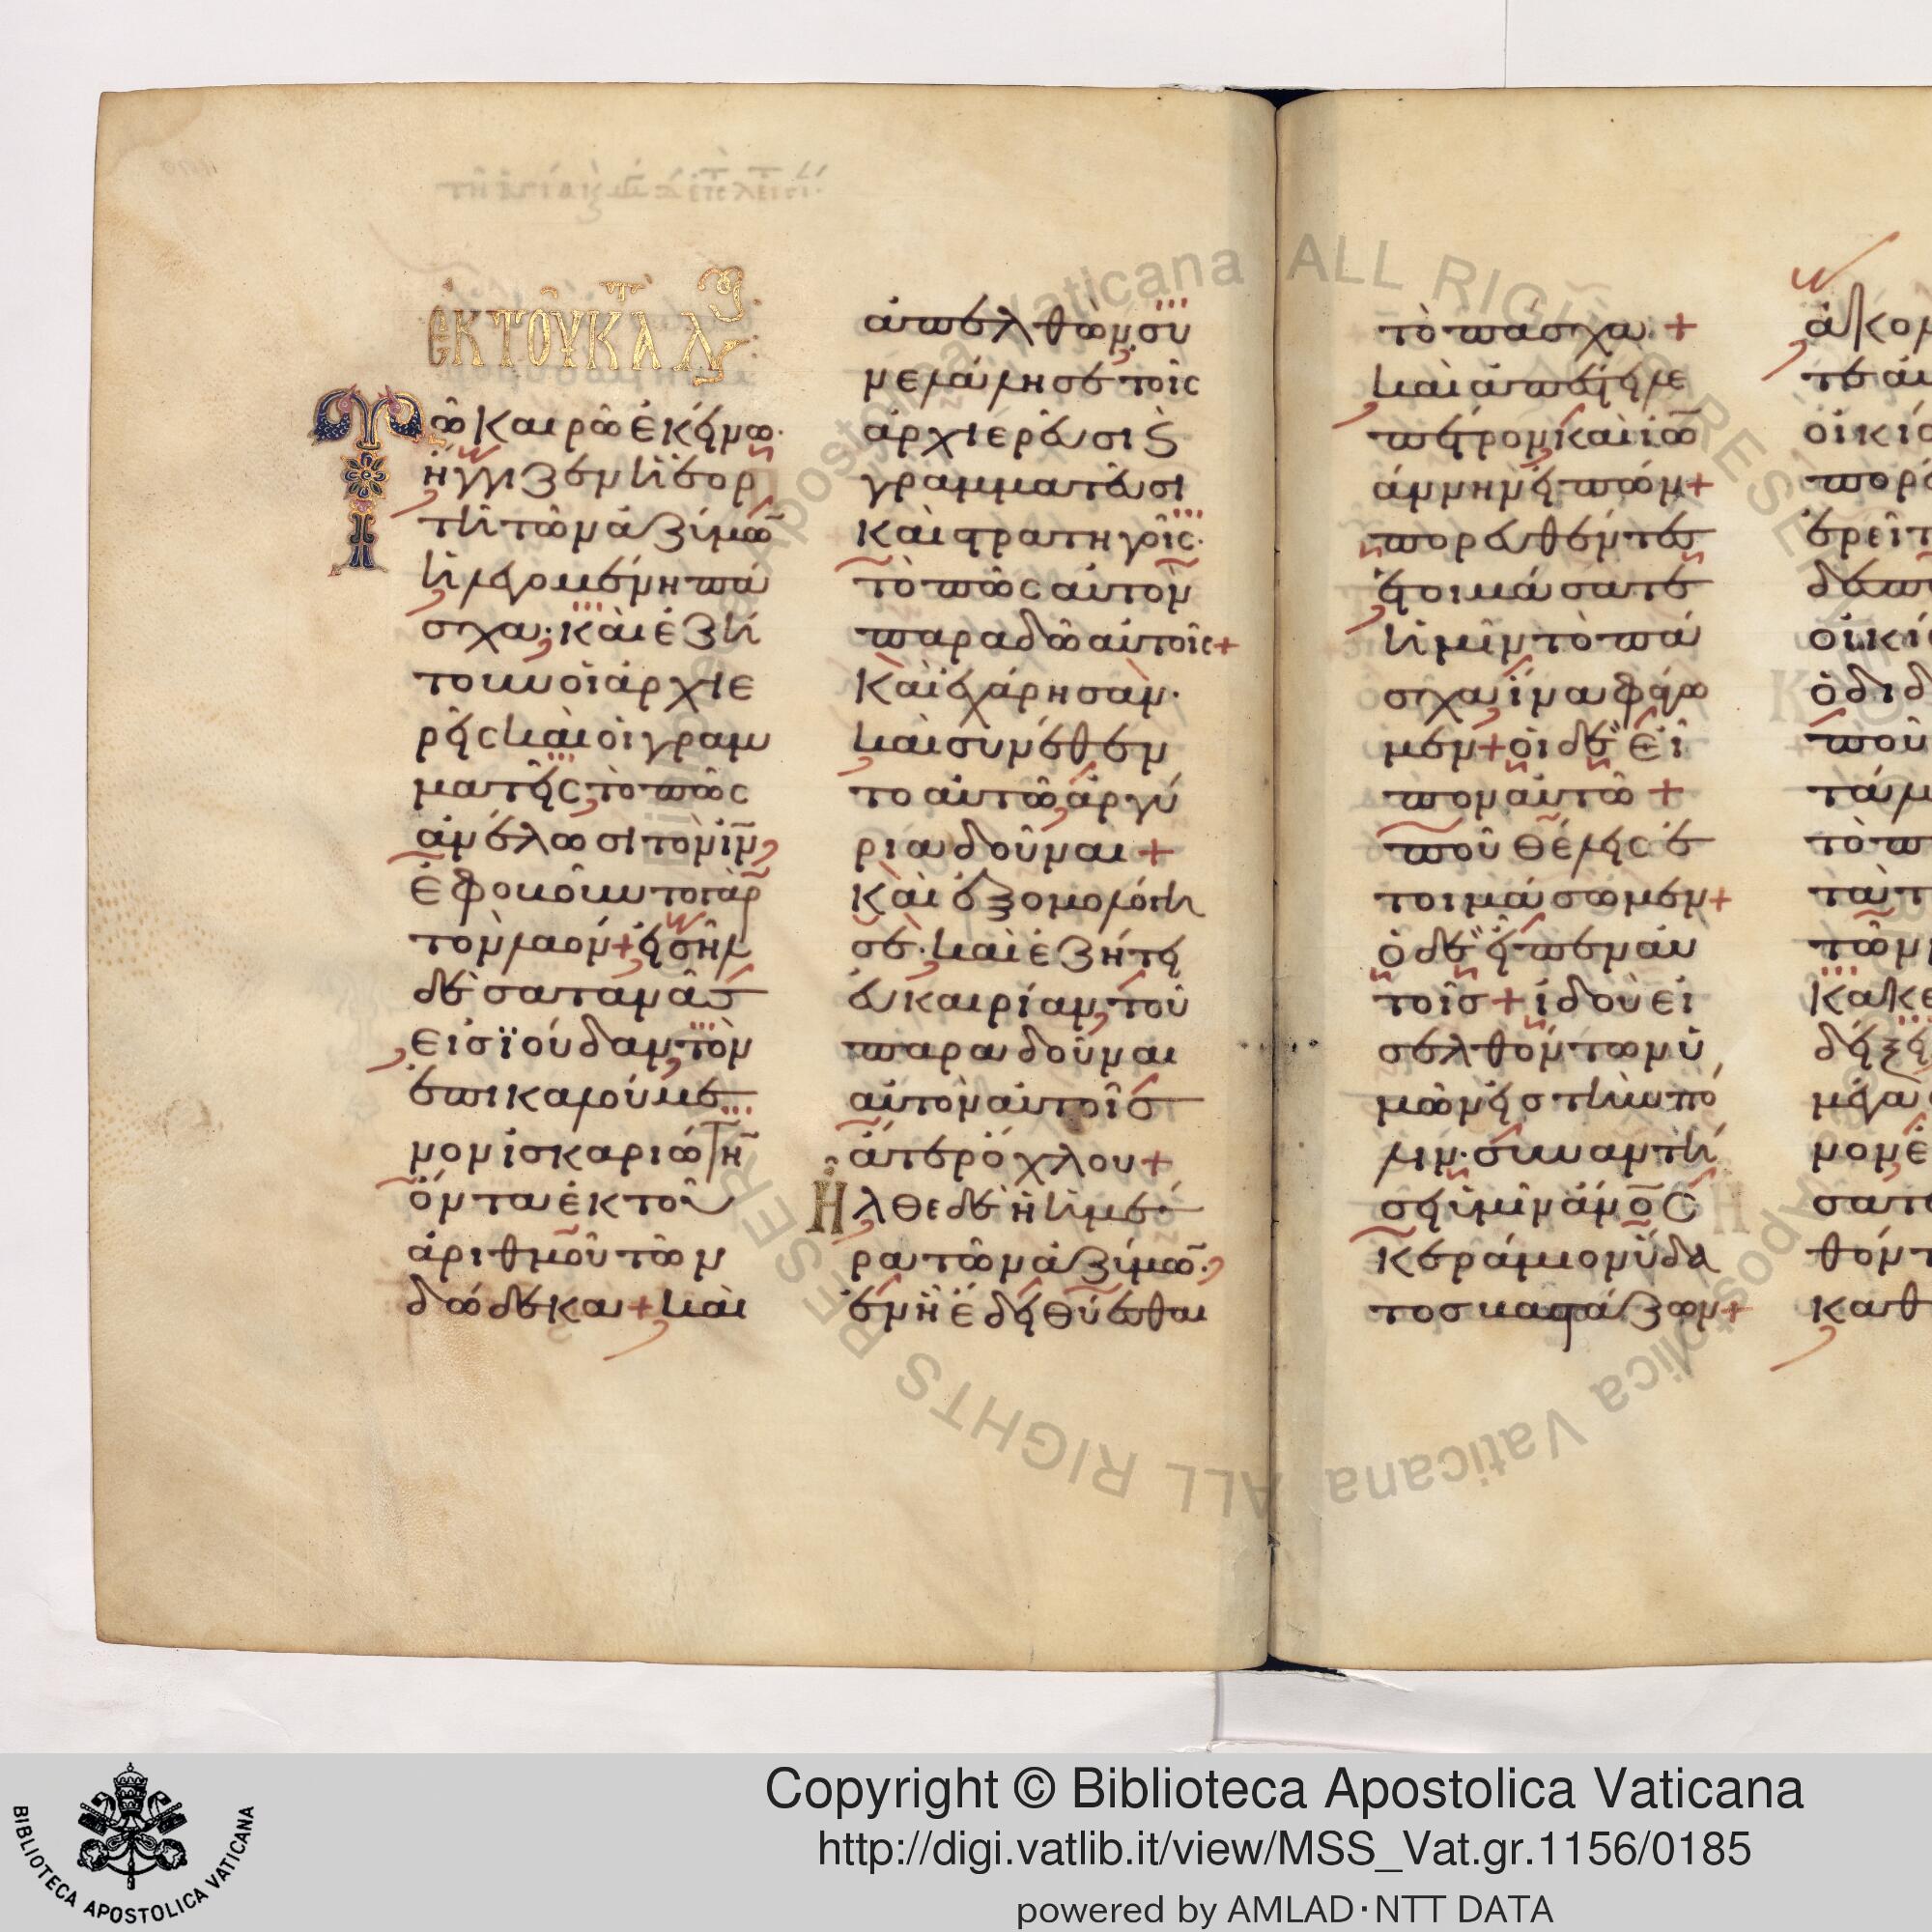 ἐκ τοῦ κ λ
Τῶ καιρῶ ἐκείνω·
ἤγγιζεν ἡ ἑορ
τὴ τῶν ἀζύμω
ἡ λεγομένη πά
σχα· καὶ ἐζή
τουν οἱ ἀρχιε
ρεῖς καὶ οἱ γραμ
ματεῖς τὸ πῶς
ἀνέλωσι τὸν ιν
ἐφοβοῦντο γὰρ
τὸν λαόν + εἰσῆλ
δὲ σατανᾶσ
εἰσ ϊούδαν τὸν
ἐπικαλούμε
νον ἰσκαριώτη
ὄντα ἐκ τοῦ
ἀριθμοῦ τῶν
δώδεκα + καὶ
ἀπελθὼν συ
νελάλησε τοῖς
ἀρχιερεῦσι ϗ
γραμματεῦσι
καὶ στρατηγοῖς·
τὸ πῶς αὐτὸν
παραδῶ αὐτοῖς +
καὶ ἐχάρησαν·
καὶ συνέθεν
το αὐτῶ ἀργύ
ρια δοῦναι +
καὶ ἐξομολόγη
σε· καὶ ἐζήτει
εὐκαιρίαν τοῦ
παραδοῦναι
αὐτὸν αὐτοῖσ
ἄτερ ὄχλου +
Ἦλθε δὲ ἡ ἡμέ
ρα τῶν ἀζύμω·
ἐν ἧ ἔδει θύεσθαι
τὸ πάσχα· +
καὶ ἀπέστειλε
πέτρον καὶ ιω
άννην εἰπών +
πορευθέντεσ
ἑτοιμάσατε
ἡμῖν τὸ πά
σχα ἵνα φάγω
μεν + οἱ δὲ εἶ
πον αὐτῶ +
ποῦ θέλεις ἑ
τοιμάσωμεν +
ὁ δὲ εἶπεν αὐ
τοῖσ + ἰδοὺ εἰ
σελθόντων ὑ
μῶν εἰσ τὴν πό
λιν· συναντή
σει ὑμῖν ἄνοσ
κεράμιον ὕδα
τοσ βαστάζων +
Copyright © Biblioteca Apostolica Vaticana
http://digi.vatlib.it/view/MSS_Vat.gr.1156/0185
powered by AMLAD·NTT DATA
BIBLIOTECA APOSTOLICA VATICANA